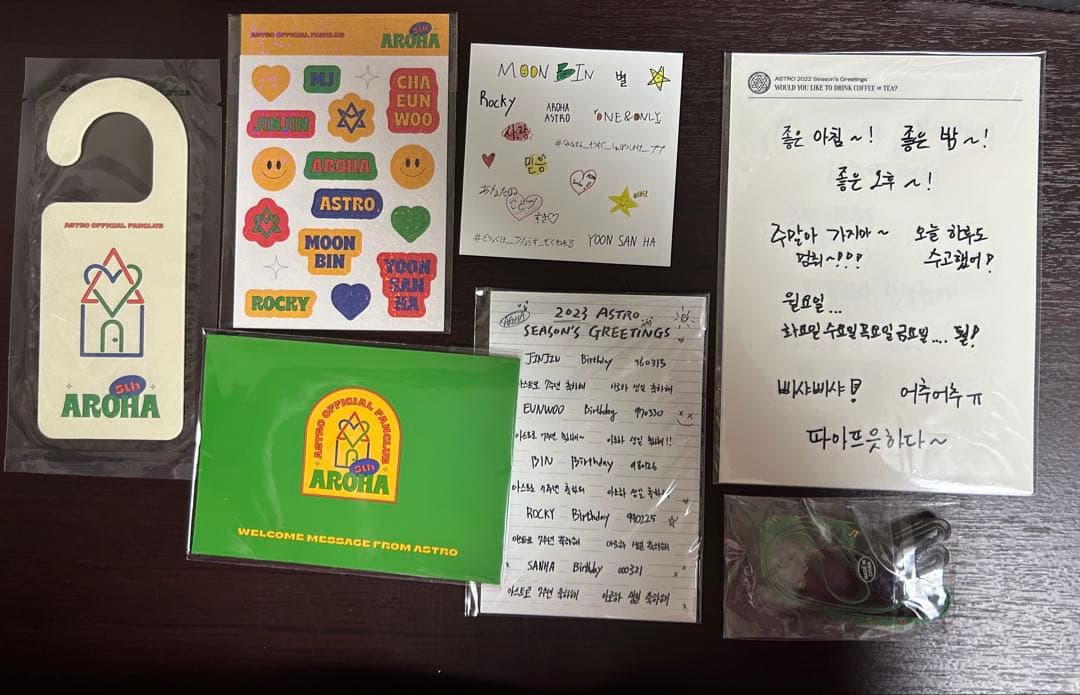 ASTRO OFFICIAL FANCLUB
5th
AROHA
ASTRO OFFICIAL FANCLUB
5th
AROHA
MJ
CHA
EUN
WOO
JINJIN
AROHA
ASTRO
MOON
BIN
YOON
SAN
HA
ROCKY
MOON BIN
별
Rocky
AROHA
ASTRO
ONE&ONLY
사랑
믿음
YOON SAN HA
ASTRO 2022 Season's Greetings
WOULD YOU LIKE TO DRINK COFFEE or TEA?
좋은 아침~! 좋은 밤~!
좋은 오후~!
주말아 가지마~ 오늘 하루도
멈춰~!!! 수고했어!
월요일...
화요일 수요일 목요일 금요일.... 월!
삐샤삐샤! 어추어추ㅠ
파이프읏하다~
ASTRO OFFICIAL FANCLUB
5th
AROHA
WELCOME MESSAGE FROM ASTRO
AROHA
2023 ASTRO
SEASON'S GREETINGS
JINJIN Birthday 960315
아스트로 7주년 축하해 아로하 생일 축하해
EUNWOO Birthday 970330
아스트로 7주년 축하해~ 아로하 생일 축하해!!
BIN Birthday 980126
아스트로 7주년 축하해 아로하 생일 축하해
ROCKY Birthday 990225
아스트로 7주년 축하해 아로하 생일 축하해
SANHA Birthday 000321
아스트로 7주년 축하해 아로하 생일 축하해